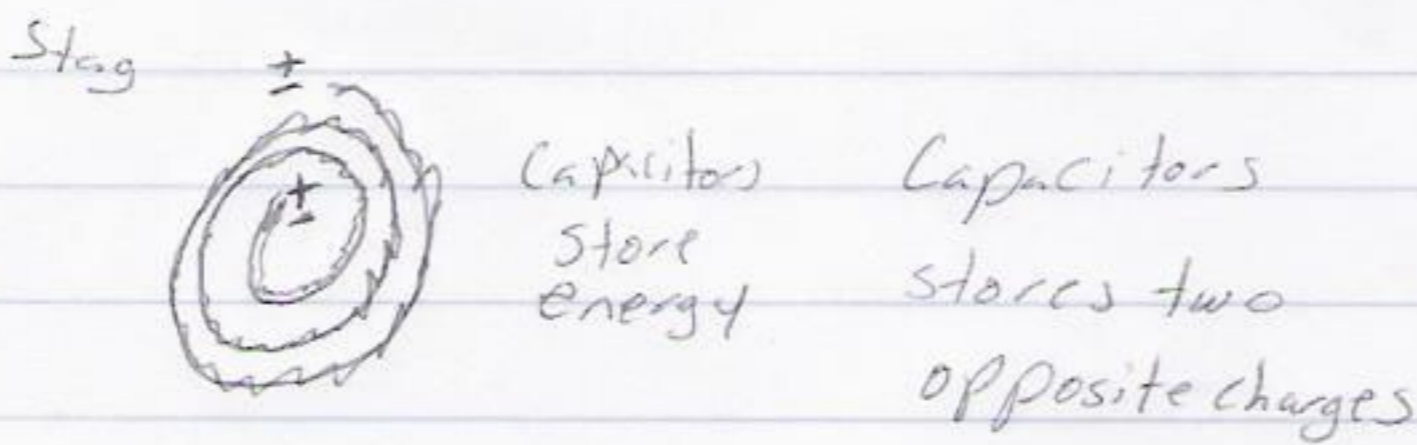 Stag
+
-
+
-
Capacitors
store
energy
Capacitors
stores two
opposite charges